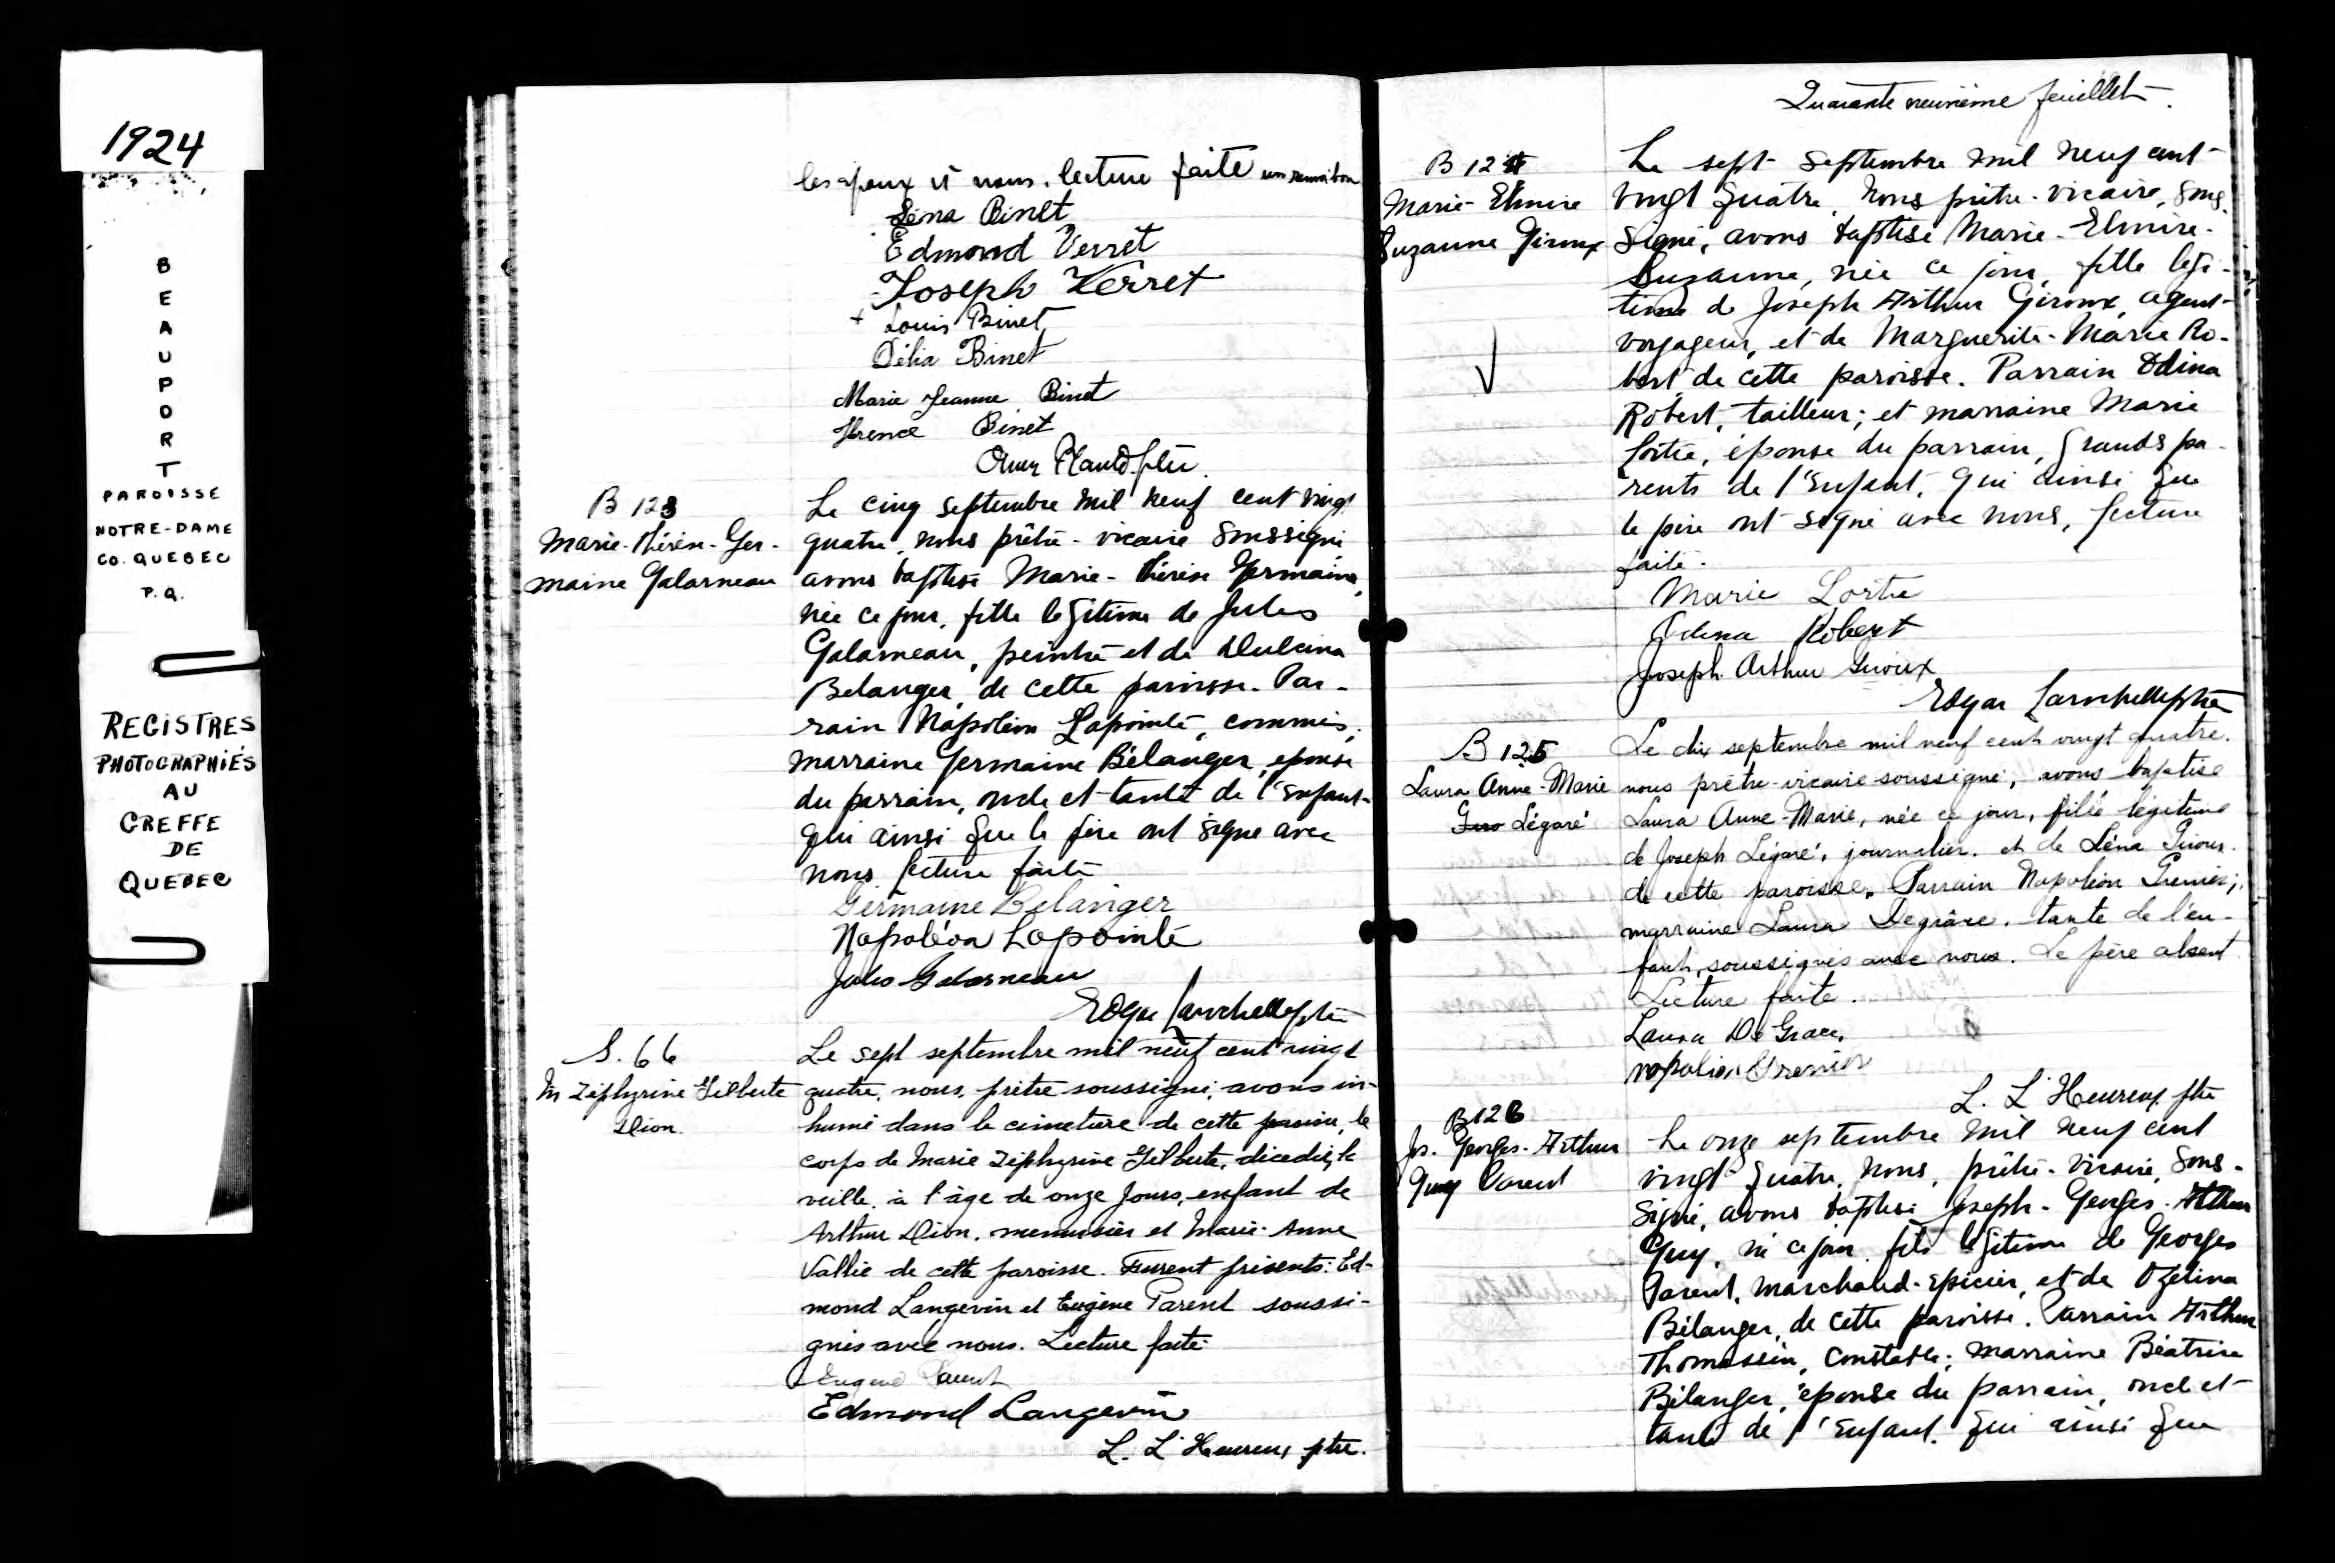 1924
BEAUPORT
PAROISSE
NOTRE-DAME
CO. QUEBEC
P.Q.
REGISTRES
PHOTOGRAPHIÉS
AU
GREFFE
DE
QUEBEC
les époux et nous. lecture faite
Léna Binet
Edmond Verret
Joseph Verret
+ Louis Binet
Délia Binet
Marie Jeanne Binet
Binet
B 123
Marie-Thérèse-Ger-
maine Galarneau
Le cinq septembre mil neuf cent vingt
quatre, nous prêtre-vicaire soussigné
avons baptisé Marie-Thérèse Germaine,
née ce jour, fille légitime de Jules
Galarneau, peintre et de Dulcina
Belanger, de cette paroisse. Par-
rain Napoléon Lapointe, commis,
marraine Germaine Bélanger, épouse
du parrain, oncle et tante de l'enfant
qui ainsi que le père ont signé avec
nous lecture faite
Germaine Belanger
Napoléon Lapointe
Jules Galarneau
Edgar Larochelle ptre
S. 66
M Zéphyrine Gilberte
Dion
Le sept septembre mil neuf cent vingt
quatre, nous, prêtre soussigné, avons in-
humé dans le cimetière de cette paroisse, le
corps de Marie Zéphyrine Gilberte, décédée, la
veille, à l'âge de onze jours, enfant de
Arthur Dion, menuisier et Marie-Anne
Vallée de cette paroisse. Furent présents: Ed-
mond Langevin et Eugène Parent soussi-
gnés avec nous. Lecture faite
Eugène Parent
Edmond Langevin
L. L'Heureux ptre.
Quarante neuvième feuillet.
B 124
Marie-Elmire
Suzanne Giroux
Le sept septembre mil neuf cent
vingt quatre, nous prêtre-vicaire, sous
signé, avons baptisé Marie-Elmire-
Suzanne, née ce jour, fille légi-
time de Joseph Arthur Giroux, agent-
voyageur, et de Marguerite-Marie Ro-
bert de cette paroisse. Parrain Odina
Robert, tailleur; et marraine Marie
Lortie, épouse du parrain, grands pa-
rents de l'enfant, qui ainsi que
le père ont signé avec nous, lecture
faite.
Marie Lortie
Odina Robert
Joseph Arthur Giroux
Edgar Larochelle ptre
B 125
Laura Anne-Marie
Giro Légaré
Le dix septembre mil neuf cent vingt quatre.
nous prêtre-vicaire soussigné, avons baptisé
Laura Anne-Marie, née ce jour, fille légitime
de Joseph Légaré, journalier. et de Léna Giroux
de cette paroisse. Parrain Napoléon Grenier;
marraine Laura Degrâce. tante de l'en-
fant, soussignés avec nous. Le père absent
Lecture faite.
Laura De Grace,
napoléon Grenier
L. L'Heureux ptre
B 126
Jos. Georges-Arthur
Guy Parent
Le onze septembre mil neuf cent
vingt-quatre, nous, prêtre-vicaire, sous-
signé, avons baptisé Joseph-Georges-Arthur
Guy, né ce jour fils légitime de Georges
Parent, marchand-épicier, et de Ozélina
Bélanger, de cette paroisse. Parrain Arthur
Thomassin, constable; marraine Béatrice
Bélanger, épouse du parrain, oncle et
tante de l'enfant. qui ainsi que